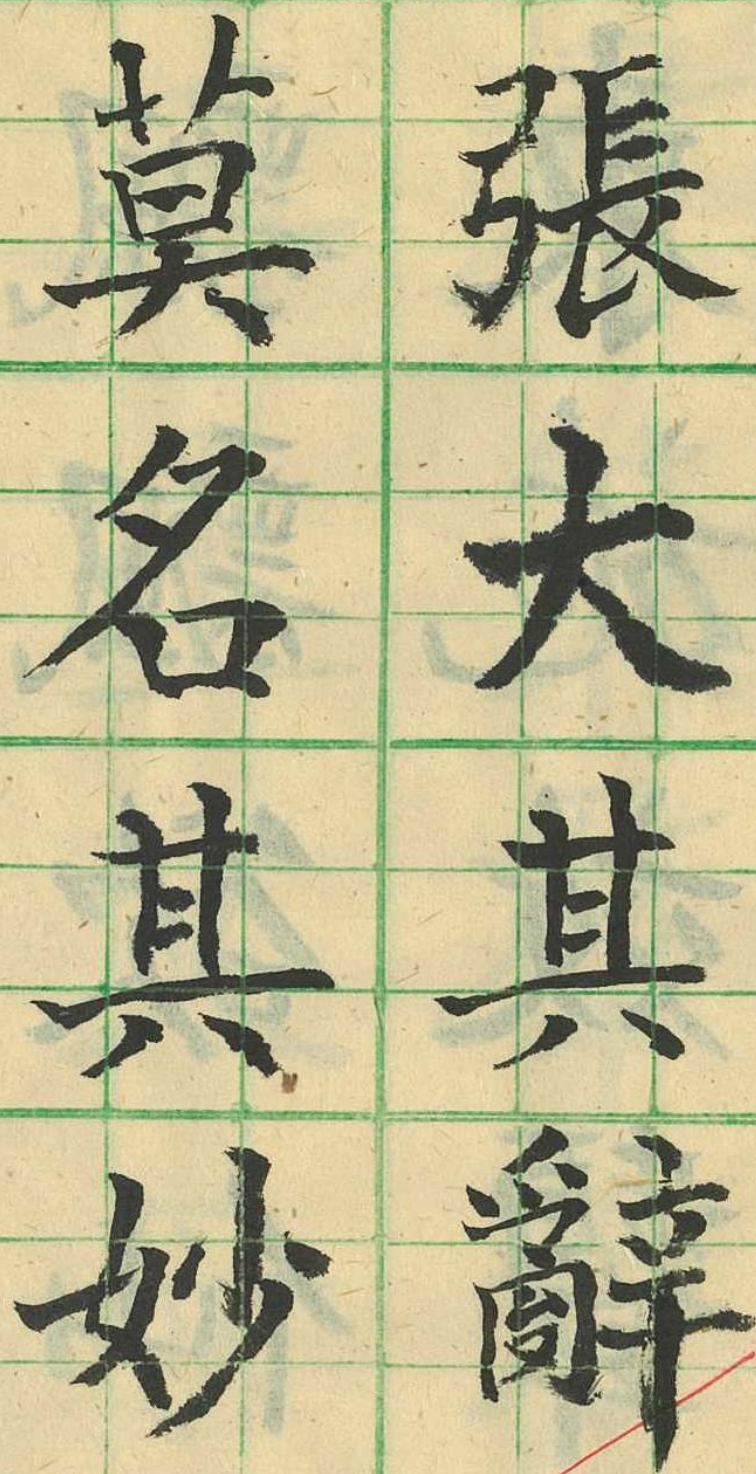 張大其辭
莫名其妙